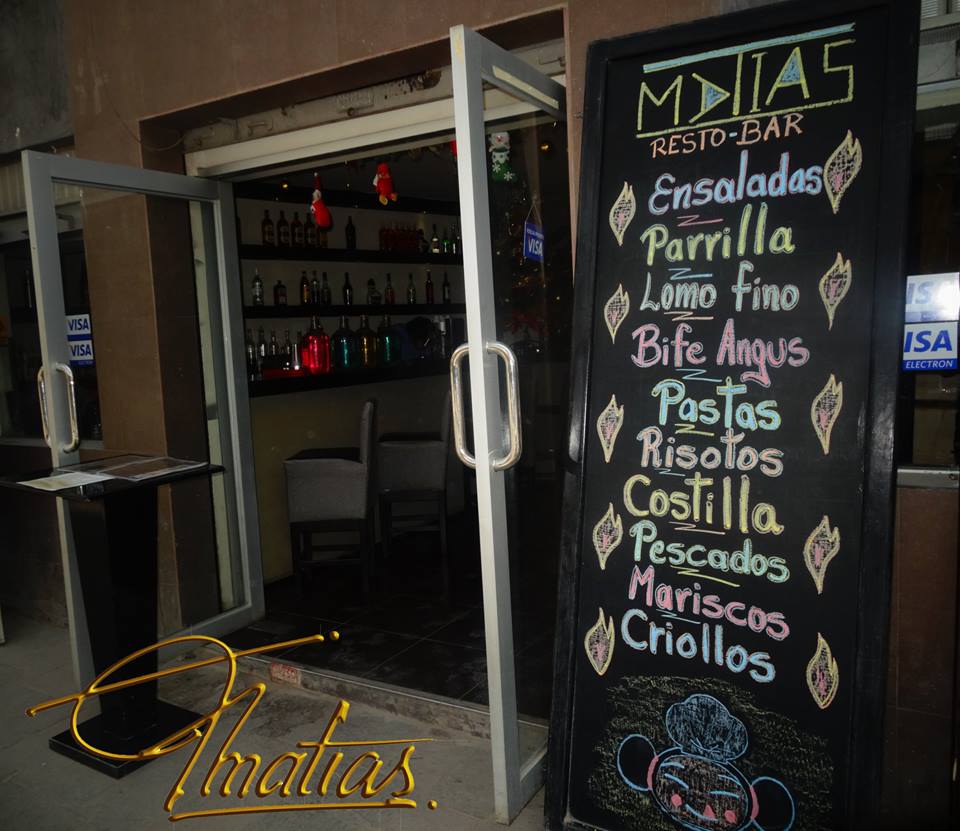 MATIAS
RESTO-BAR
Ensaladas
Parrilla
Lomo fino
Bife Angus
Pastas
Risotos
Costilla
Pescados
Mariscos
Criollos
VISA
VISA
VISA
VISA
ELECTRON
matias.